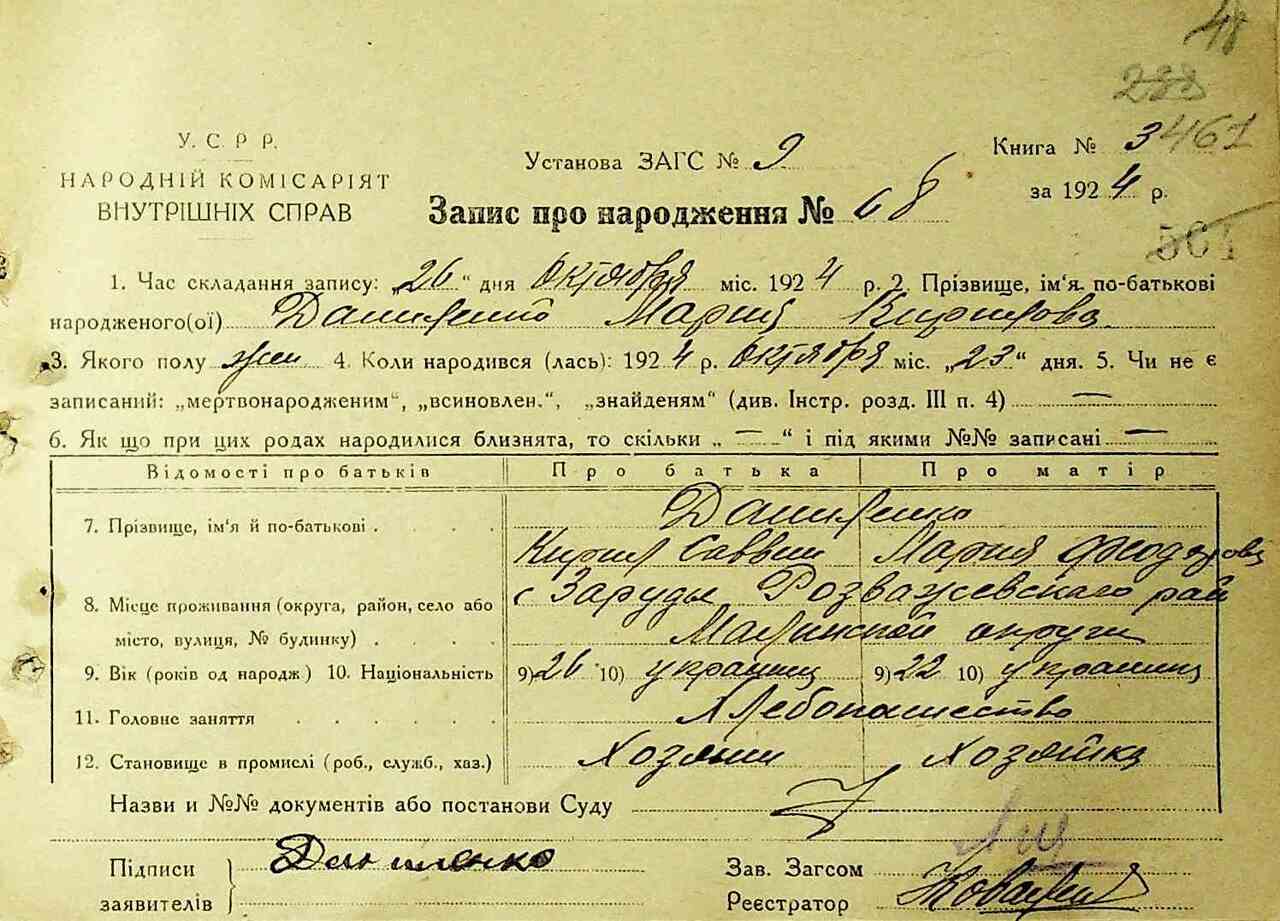 48
288
У. С. Р Р.
НАРОДНІЙ КОМІСАРІЯТ
ВНУТРІШНІХ СПРАВ
Установа ЗАГС № 9
Книга № 3 461
за 1924 р.
Запис про народження № 68
561
1. Час складання запису: „26" дня Октября міс. 1924 р. 2. Прізвище, ім'я, по-батькові
народженого(ої) Даниленко Мария Кирилова
3. Якого полу жен 4. Коли народився (лась): 1924 р. Октября міс. „23" дня. 5. Чи не є
записаний: „мертвонародженим", „всиновлен.", „знайденям" (див. Інстр. розд. III п. 4) —
6. Як що при цих родах народилися близнята, то скільки „—" і під якими №№ записані —
Відомості про батьків Про батька Про матір
7. Прізвище, ім'я й по-батькові . . . . Даниленко
Кирил Саввин Мария Феодорова
8. Місце проживання (округа, район, село або с Заруды Розважевскаго рай
місто, вулиця, № будинку) . . . . Малинской округи
9. Вік (років од народж) 10. Національність 9) 26 10) украинец 9) 22 10) украинец
11. Головне заняття . . . . . . Хлебопашество
12. Становище в промислі (роб., служб., хаз.) Хозяин Хозяйка
Назви и №№ документів або постанови Суду
Підписи Даниленко
заявителів
Зав. Загсом
Реєстратор